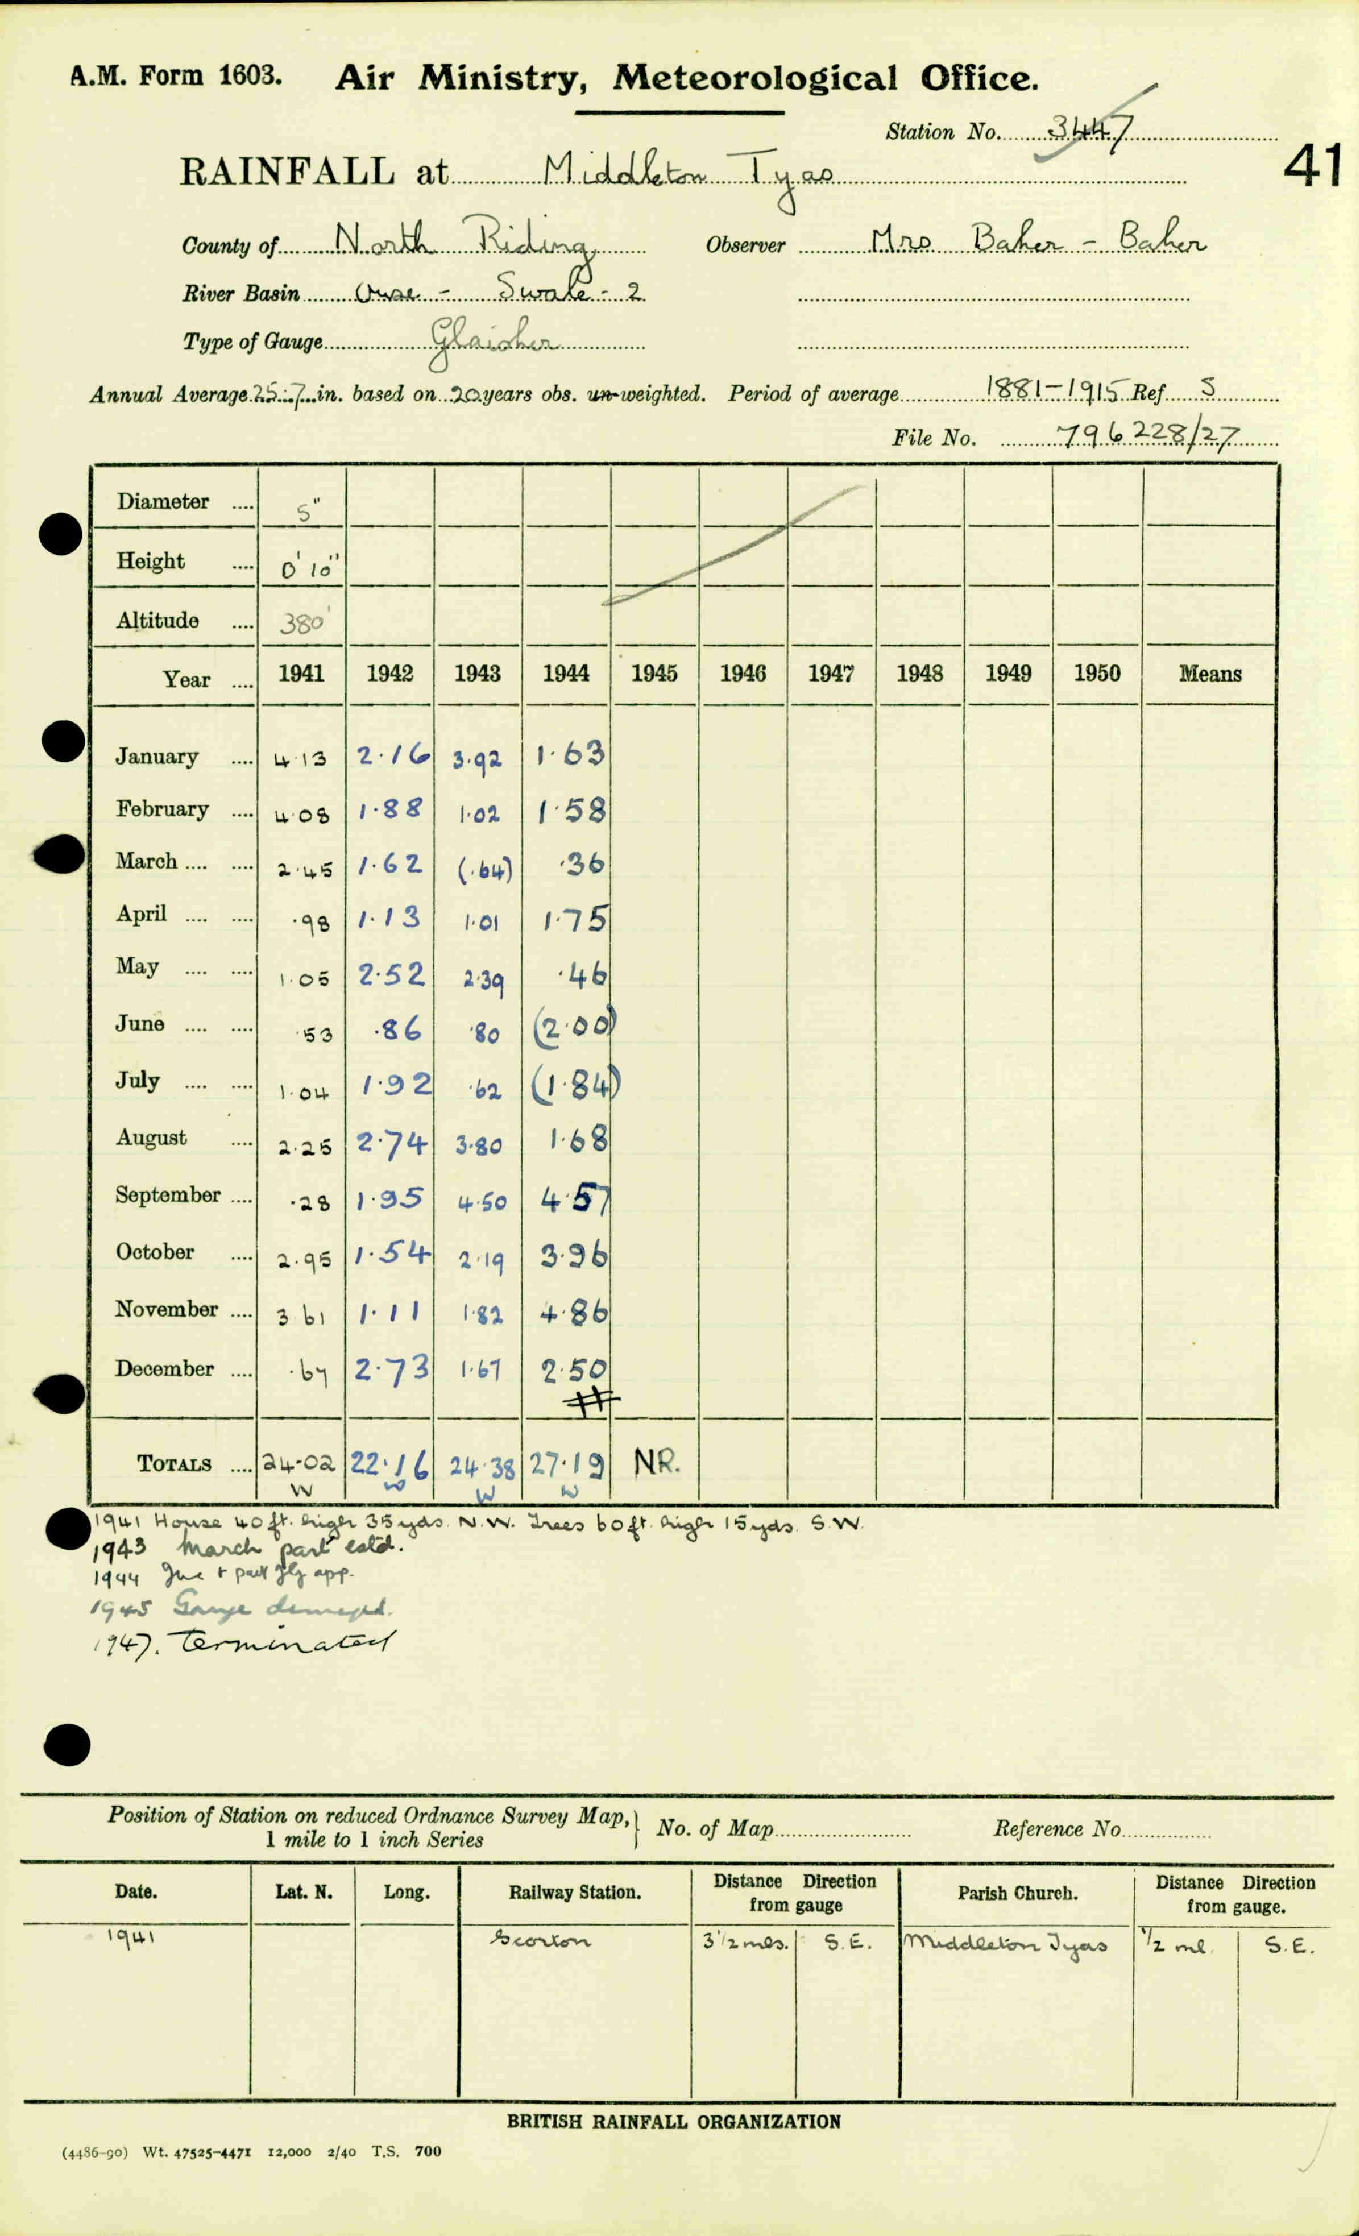 A.M. Form 1603. Air Ministry, Meteorological Office.
Station No. 3447
41
RAINFALL at Middleton Tyas
County of North Riding Observer Mrs Baker - Baker
River Basin Ouse - Swale - 2
Type of Gauge Glaisher
Annual Average 25.7 in. based on 20 years obs. un-weighted. Period of average 1881-1915 Ref S
File No. 796228/27
Diameter .... 5"
Height .... 0' 10"
Altitude .... 380'
Year .... 1941 1942 1943 1944 1945 1946 1947 1948 1949 1950 Means
January .... 4.13 2.16 3.92 1.63
February .... 4.08 1.88 1.02 1.58
March .... .... 2.45 1.62 (.64) .36
April .... .... .98 1.13 1.01 1.75
May .... .... 1.05 2.52 2.39 .46
June .... .... .53 .86 .80 (2.00)
July .... .... 1.04 1.92 .62 (1.84)
August .... 2.25 2.74 3.80 1.68
September .... .28 1.95 4.50 4.57
October .... 2.95 1.54 2.19 3.96
November .... 3.61 1.11 1.82 4.86
December .... .67 2.73 1.67 2.50
TOTALS .... 24.02 22.16 24.38 27.19 NR.
W W W W
1941 House 40ft. high 35yds. N.W. Trees 60ft. high 15yds. S.W.
1943 March part estd.
1944 June + part July app.
1945 Gauge damaged.
1947. Terminated
Position of Station on reduced Ordnance Survey Map, 1 mile to 1 inch Series } No. of Map Reference No.
Date. Lat. N. Long. Railway Station. Distance Direction from gauge Parish Church. Distance Direction from gauge.
1941 Scorton 3 1/2 mls. S.E. Middleton Tyas 1/2 ml. S.E.
BRITISH RAINFALL ORGANIZATION
(4486-90) Wt. 47525-4471 12,000 2/40 T.S. 700